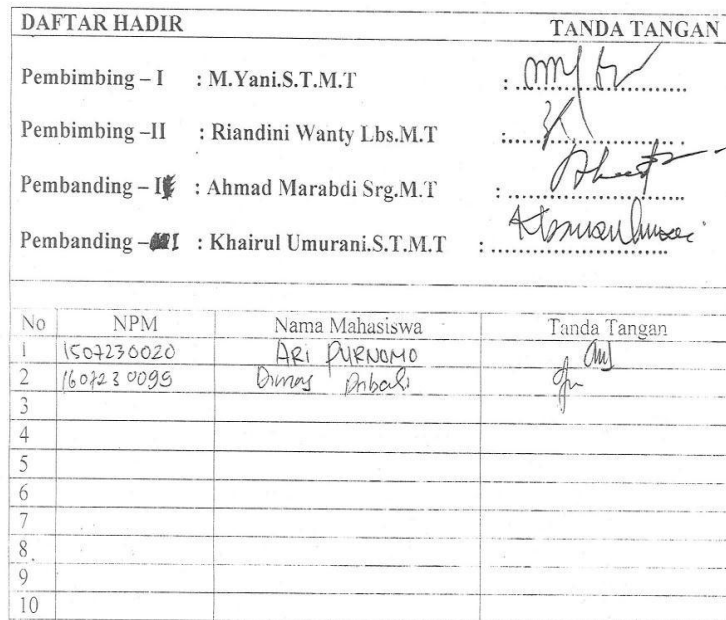 DAFTAR HADIR TANDA TANGAN
Pembimbing – I : M.Yani.S.T.M.T : ..................
Pembimbing –II : Riandini Wanty Lbs.M.T :..................
Pembanding – I : Ahmad Marabdi Srg.M.T : ..................
Pembanding – I : Khairul Umurani.S.T.M.T : ..................
No NPM Nama Mahasiswa Tanda Tangan
1 1507230020 ARI PURNOMO
2 1607230099 Dimas
3
4
5
6
7
8
9
10